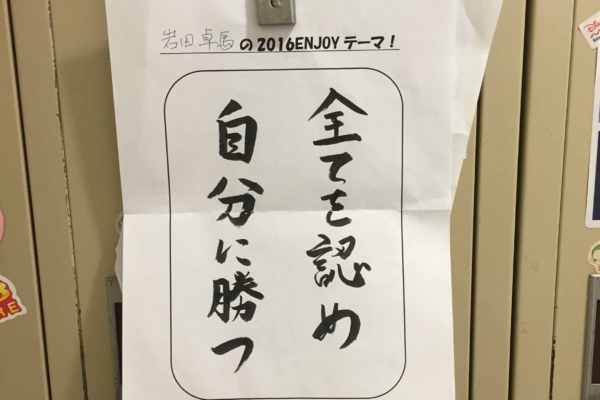 岩田卓馬の2016ENJOYテーマ！
全てを認め
自分に勝つ